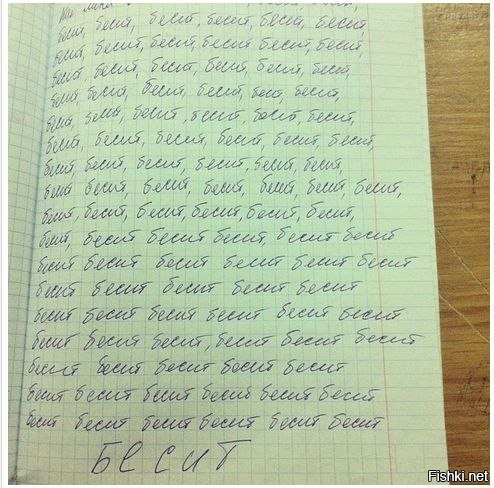 бесит, бесит, бесит, бесит, бесит, бесит
бесит, бесит, бесит, бесит бесит, бесит,
бесит, бесит, бесит, бесит, бесит, бесит,
бесит, бесит, бесит, бесит, бесит, бесит,
бесит, бесит, бесит, бесит, бесит, бесит,
бесит, бесит, бесит, бесит, бесит, бесит,
бесит, бесит, бесит, бесит, бесит, бесит,
бесит бесит, бесит, бесит, бесит, бесит, бесит,
бесит, бесит, бесит, бесит, бесит, бесит,
бесит, бесит бесит бесит, бесит бесит
бесит бесит бесит бесит бесит бесит
бесит бесит бесит бесит бесит
бесит бесит бесит бесит бесит бесит
бесит бесит бесит, бесит бесит бесит
бесит бесит бесит бесит бесит
бесит бесит бесит бесит бесит бесит
бесит бесит бесит бесит бесит бесит
БЕСИТ
Fishki.net